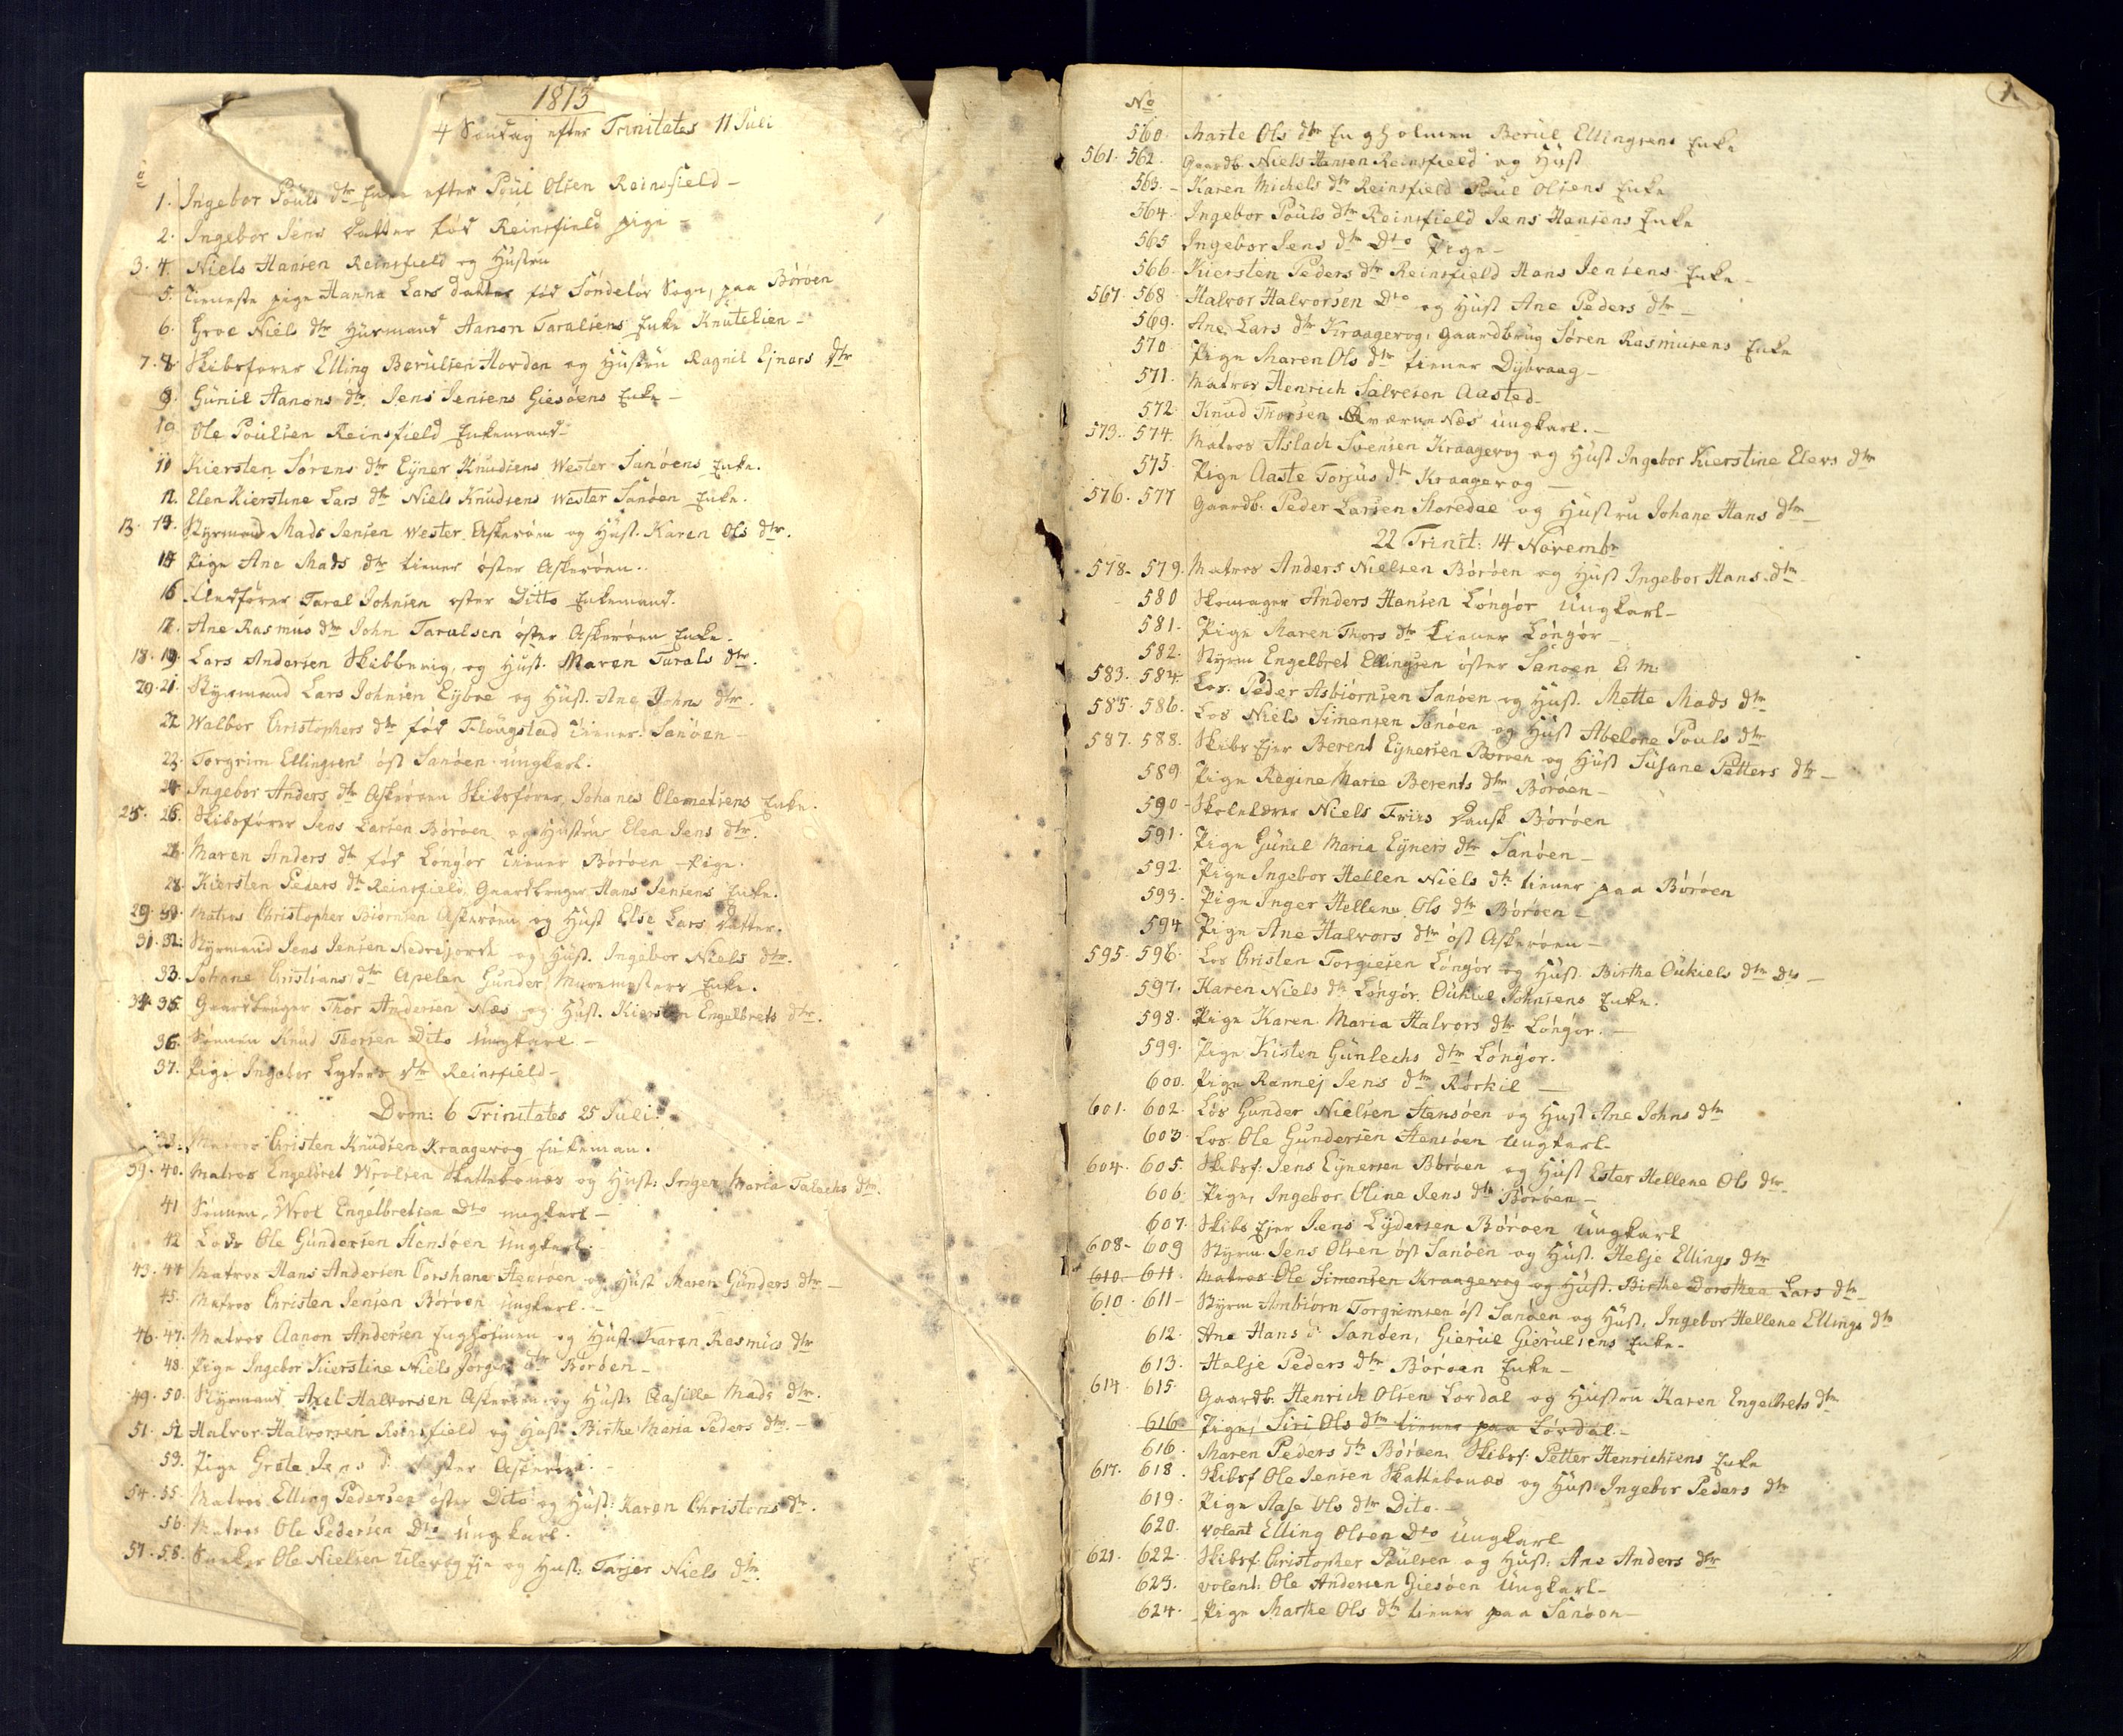 1813
4 Søndag efter Trinitates 11 Juli
1. Ingebor Pouls dtr Enke efter Poul Olsen Reinsfield -
2. Ingebor Jens Datter fød Reinsfield pige -
3. 4. Niels Hansen Reinsfield og Hustru
5. Tieneste pige Hanna Lars datter fød Søndeløv Sogn, paa Børøen
6. Groe Niels dtr Huusmand Aanon Taralsens Enke Knutelien -
7. 8. Skibsfører Elling Berulsen Hordan og Hustru Ragnil Ejners dtr
9. Gunil Aanons dtr. Jens Jensens Giesøens Enke -
10 Ole Poulsen Reinsfield Enkemand -
11 Kiersten Sørens dtr Eyner Knudsens Wester Sanøens Enke.
12. Elen Kierstine Lars dtr Niels Knudsens Wester Sanøen Enke.
13. 14. Styrmand Mads Jensen Wester Askerøen og Hust. Karen Ols dtr.
14 Pige Ane Mads dtr tiener øster Askerøen.
16 Taral Johnsen øster Ditto Enkemand.
17. Ane Rasmus dtr John Taralsen øster Askerøen Enke.
18. 19. Lars Andersen Skibbevig, og Hust. Maren Tarals dtr.
20. 21. Styrmand Lars Johnsen Eyboe og Hust. Ane Johns dtr.
22 Walbor Christophers dtr fød Flougstad tiener Sanøen -
23. Torgrim Ellingsen øst Sanøen ungkarl.
24 Ingebor Anders dtr Askerøen Skibsfører Johanes Clemetsens Enke.
25. 26. Skibsfører Jens Larsen Børøen og Hustrue Elen Jens dtr.
Maren Anders dtr fød Løngør tiener Børøen Pige.
28. Kiersten Peders dtr Reinsfield Gaardbruger Hans Jensens Enke.
29. 30. Matros Christopher Biørnsen Askerøen og Hust Else Lars Datter.
31. 32. Styrmand Jens Jensen Nedrejord og Hust. Ingebor Niels dtr.
33. Johane Christians dtr Apelen Gunder Muremesters Enke.
34 35 Gaardbruger Thor Andersen Næs og Hust. Kiersten Engelbrets dtr.
36. Sønnen Knud Thorsen Dito Ungkarl -
37. Pige Ingebor Lyders dtr Reinsfield -
Dom: 6 Trinitates 25 Juli.
38. Matros Christen Knudsen Kraagevog Enkeman.
39. 40. Matros Engelbret Wrolsen Skattebonæs og Hust: Inger Maria Talachs dtr.
41 Sønnen, Wrol Engelbretsen Dto ungkarl -
42 Lods Ole Gundersen Stensøen Ungkarl.
43. 44 Matros Hans Andersen Stensøen og Hust Maren Gunders dtr -
45. Matros Christen Jensen Børøen ungkarl. -
46. 47. Matros Aanon Andersen Engholmen og Hust. Karen Rasmus dtr
48. Pige Ingebor Kierstine Niels Jørgen dtr Børøen -
49. 50. Styrmand Axel Halvorsen Askerøen og Hust: Casille Mads dtr.
51. 52 Halvor Halvorsen Reinsfield og Hust: Birthe Maria Peders dtr. -
53. Pige Grete Jens d øster Askerøen. -
54. 55. Matros Elling Pedersen øster Dito og Hust: Karen Christens dtr.
56. Matros Ole Pedersen Dto Ungkarl.
57. 58. Ole Nielsen og Hust: Tarjer Niels dtr.
No 1.
560. Marte Ols dtr Engholmen Berul Ellingsens Enke
561. 562. Gaardb. Niels Hansen Reinsfield og Hust
563. - Karen Michels dtr Reinsfield Poul Olsens Enke
564. Ingebor Pouls dtr Reinsfield Jens Hansens Enke
565 Ingebor Jens dtr Dto Pige -
566. Kiersten Peders dtr Reinsfield Hans Jensens Enke -
567. 568 Halvor Halvorsen Dto og Hust Ane Peders dtr -
569. Ane Lars dtr Kraagevog, Gaardbrug Søren Rasmusens Enke
570 Pige Maren Ols dtr tiener Dybvaag -
571. Matros Henrich Salvesen Aasted -
572. Knud Thorsen Kværne Næs Ungkarl. -
573. 574. Matros Aslach Svensen Kraagevog og Hust Ingebor Kierstine Elers dtr
575. Pige Aaste Torjus dtr Kraagevog -
576. 577 Gaardb. Peder Larsen Storedae og Hustru Johane Hans dtr -
22 Trinit: 14 Novembr
578 - 579. Matros Anders Nielsen Børøen og Hust Ingebor Hans dtr
580 Skomager Anders Hansen Løngør Ungkarl -
581. Pige Maren Thors dtr tiener Løngør -
582. Styrm Engelbret Ellingsen øster Sanøen E. M:
583. 584. Los: Peder Asbiørnsen Sanøen og Hust. Mette Mads dtr
585. 586. Los Niels Simensen Sanøen og Hust Abelone Pouls dtr
587. 588. Skibs Ejer Berent Eynersen Børøen og Hust Susane Petters dtr -
589 Pige Regine Marie Berents dtr Børøen -
590 - Skolelærer Niels Friis Dansk Børøen
591. Pige Gunel Maria Eyners dtr Sanøen -
592. Pige Ingebor Hellen Niels dtr tiener paa Børøen
593. Pige Inger Hellene Ols dtr Børøen -
594 Pige Ane Halvors dtr øst Askerøen -
595. 596. Los Christen Torgiesen Løngør og Hust. Birthe Oukiels dtr Dto -
597. Karen Niels dtr Løngør. Oukiel Johnsens Enke.
598. Pige Karen Maria Halvors dtr Løngør. -
599. Pige Kisten Gunlechs dtr Løngør.
600. Pige Rannej Jens dtr Rørkil -
601. 602. Los Gunder Nielsen Stensøen og Hust Ane Johns dtr
603 Los Ole Gundersen Stensøen Ungkarl -
604. 605. Skibsf: Jens Eynersen Børøen og Hust Ester Hellene Ols dtr
606. Pige, Ingebor Oline Jens dtr Børøen -
607. Skibs Ejer Jens Lydersen Børøen Ungkarl
608 - 609 Styrm. Jens Olsen øst Sanøen og Hust. Helje Ellings dtr
610 - 611. Matros Ole Simensen Kraagevog og Hust. Birthe Dorothea Lars dtr -
610. 611 - Styrm Anbiørn Torgrimsen øst Sanøen og Hust. Ingebor Hellene Ellings dtr
612. Ane Hans d Sanden, Gierul Gierulsens Enke -
613. Helje Peders dtr Børøen Enke -
614 615. Gaardb. Henrich Olsen Lordal og Hustru Karen Engelbrets dtr
616 Pige, Siri Ols dtr tiener paa Lørdal -
616. Maren Peders dtr Børøen, Skibsf. Petter Henrichsens Enke
617. 618. Skibsf Ole Jensen Skattebonæs og Hust Ingebor Peders dtr
619. Pige Aase Ols dtr Dito -
620. Volent Elling Olsen Dto Ungkarl
621. 622 - Skibsf. Christopher Poulsen og Hust: Ane Anders dtr
623. Volent: Ole Andersen Giesøen Ungkarl -
624. Pige Marthe Ols dtr tiener paa Sanøen -